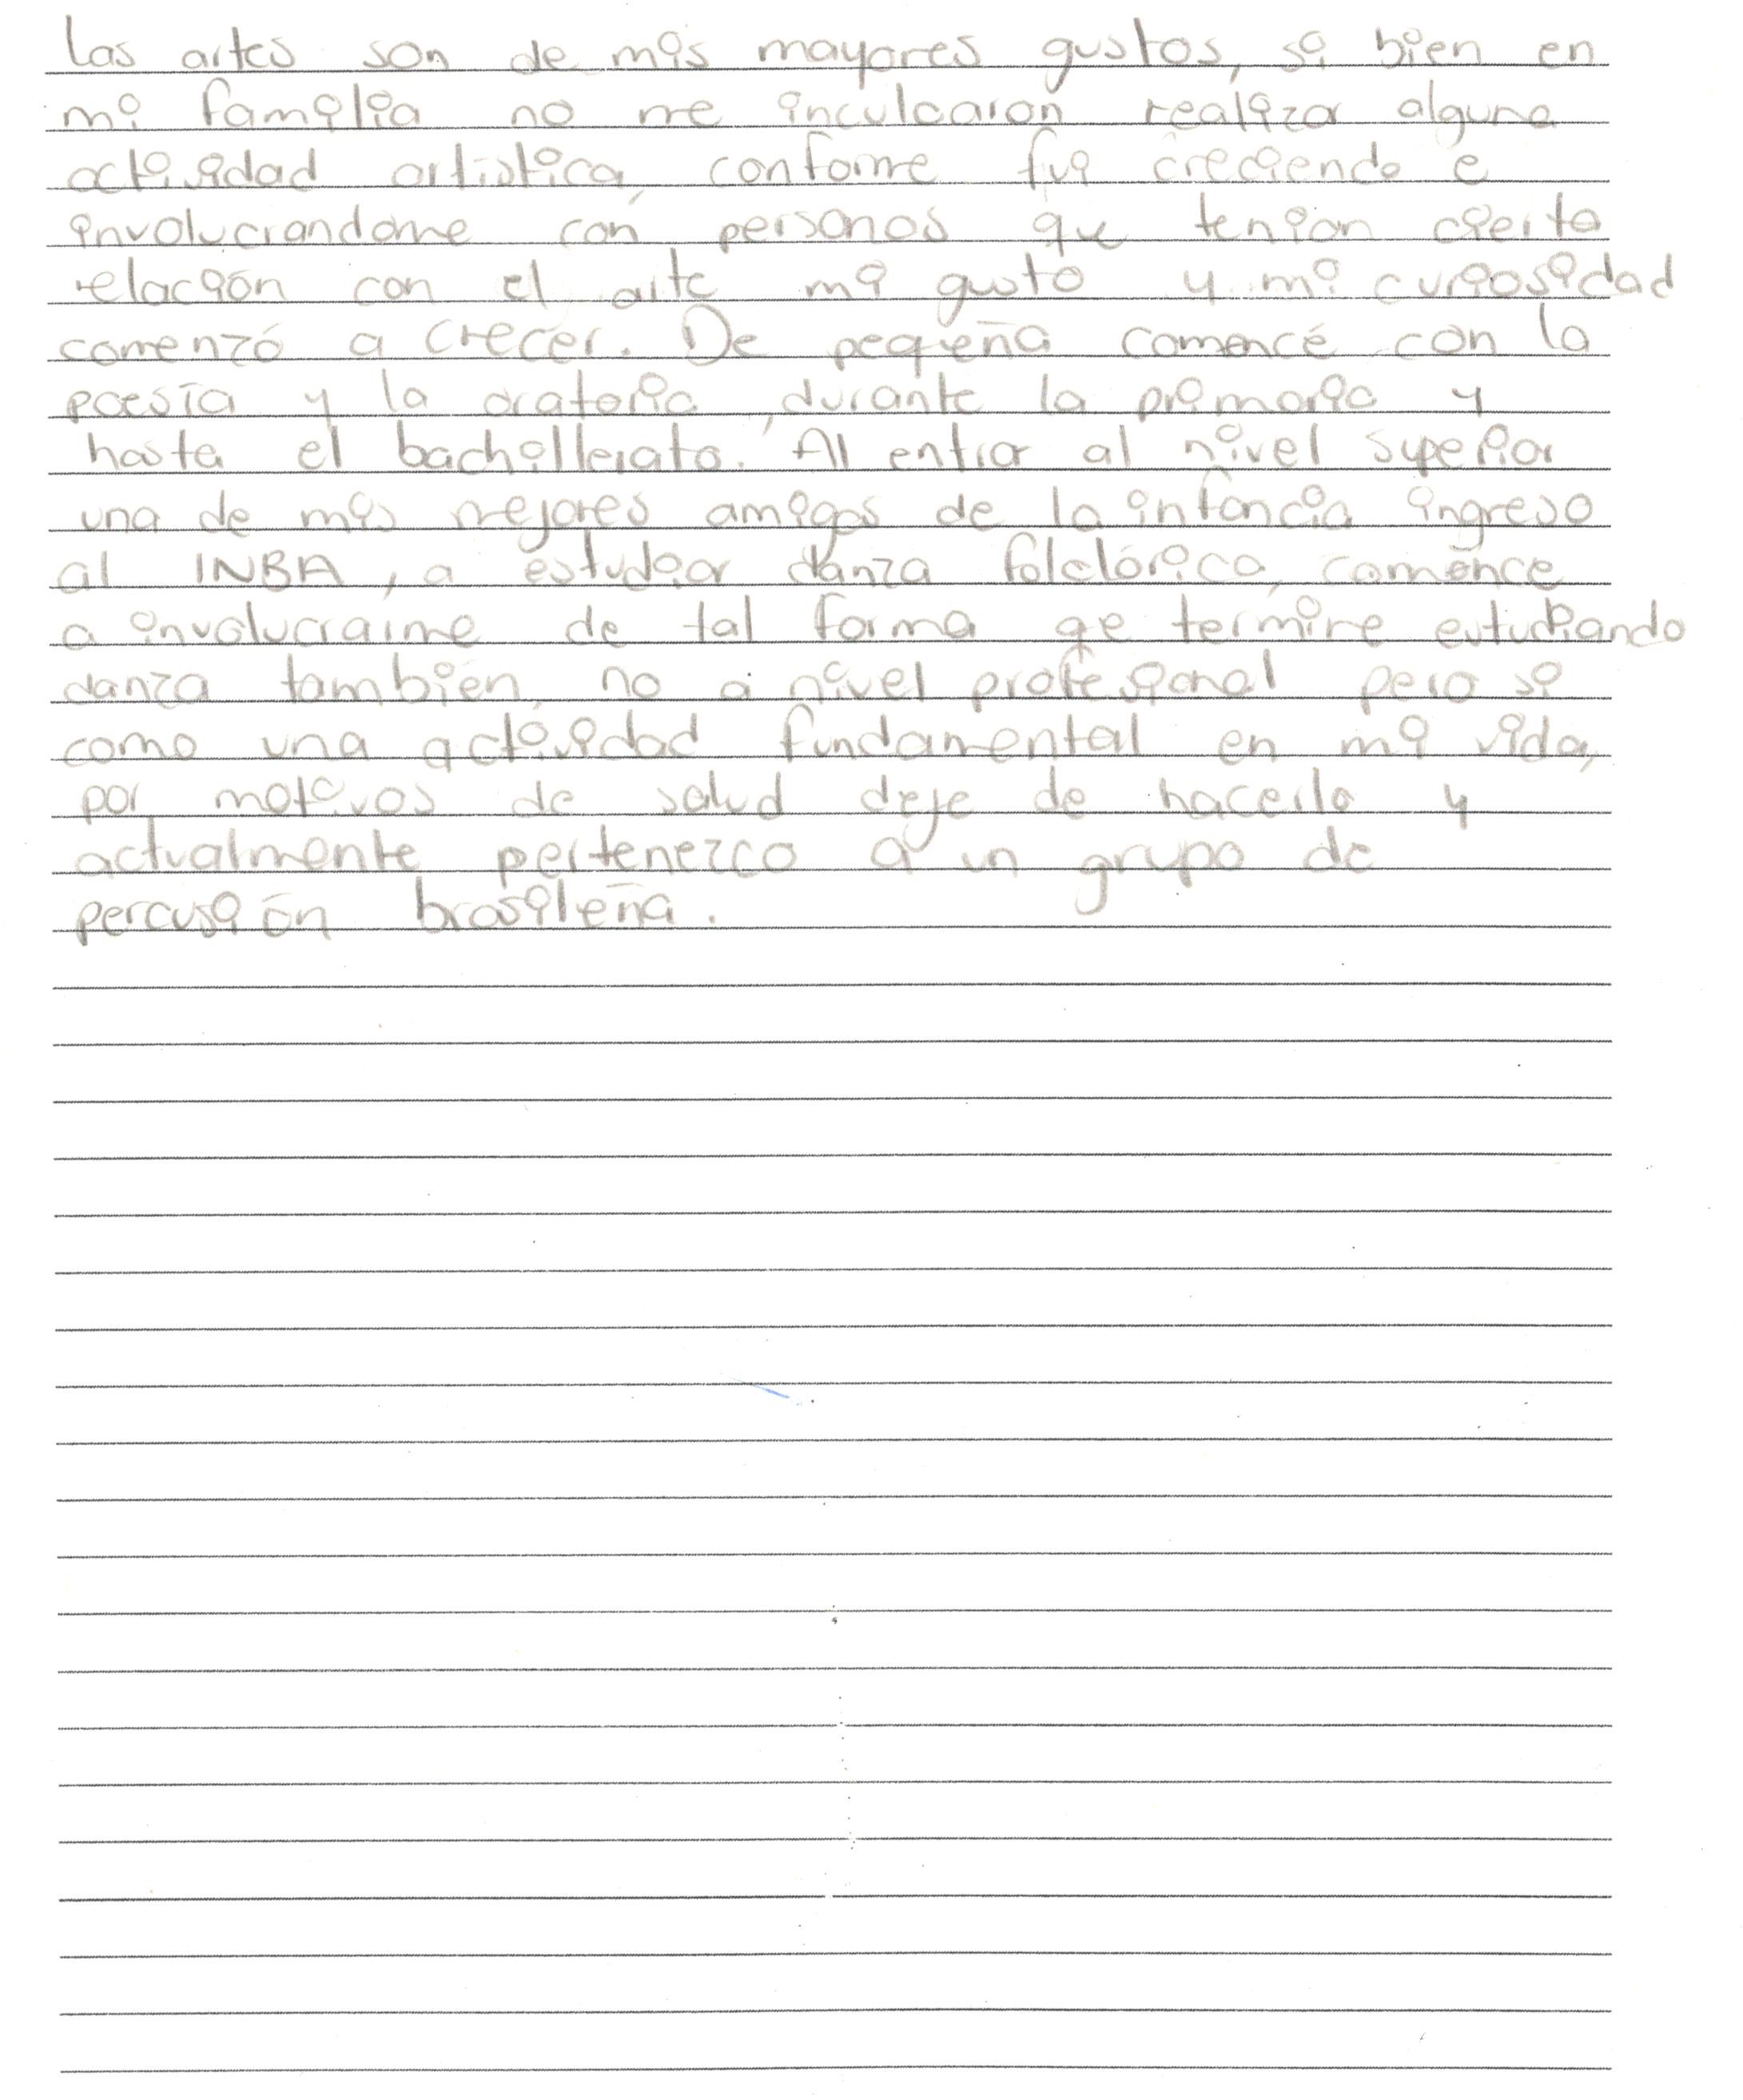 Las artes son de mis mayores gustos, si bien en
mi familia no me inculcaron realizar alguna
actividad artistica, conforme fui creciendo e
involucrandome con personas que tenian cierta
relación con el arte mi gusto y mi curiosidad
comenzó a crecer. De pequeña comencé con la
poesía y la oratoria, durante la primaria y
hasta el bachillerato. Al entrar al nivel superior
una de mis mejores amigas de la infancia ingreso
al INBA, a estudiar danza folclórica, comence
a involucrarme de tal forma qe termine estudiando
danza también, no a nivel profesional pero si
como una actividad fundamental en mi vida,
por motivos de salud deje de hacerlo y
actualmente pertenezco a un grupo de
percusión brasileña.